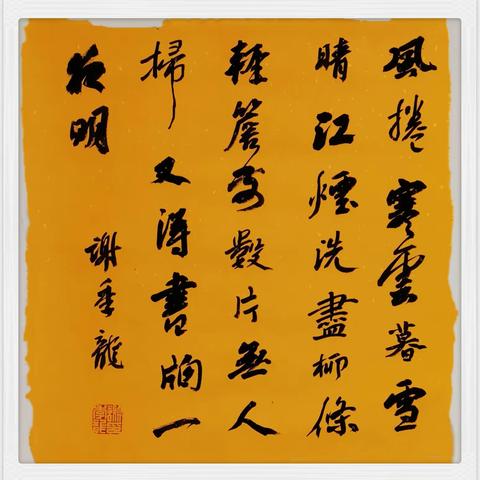 風捲寒雲暮雪
晴江煙洗盡柳條
輕簷前數片無人
掃又得書牕一
夜明
謝季龍